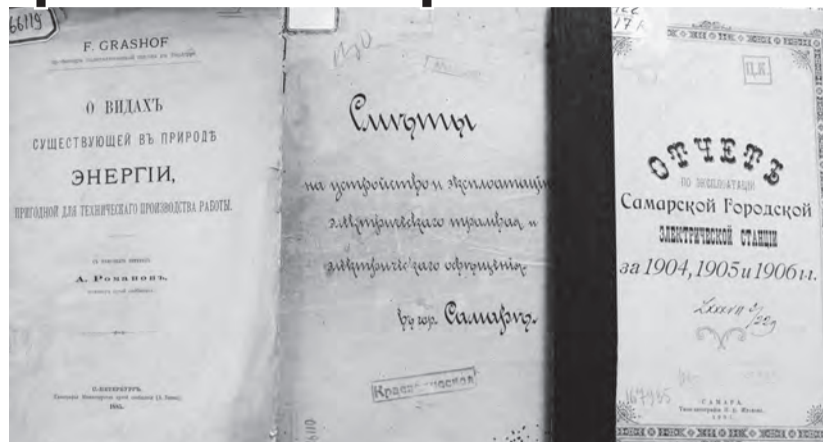 66119
F. GRASHOF
О ВИДАХЪ
СУЩЕСТВУЮЩЕЙ ВЪ ПРИРОДѢ
ЭНЕРГІИ,
ПРИГОДНОЙ ДЛЯ ТЕХНИЧЕСКАГО ПРОИЗВОДСТВА РАБОТЫ.
А. Романовъ.
С.-ПЕТЕРБУРГЪ.
Смѣты
на устройство и эксплоатацію
электрическаго трамвая и
электрическаго освѣщенія
въ гор. Самарѣ.
6119
122
17
Ц.К.
ОТЧЕТЪ
ПО ЭКСПЛОАТАЦІИ
Самарской Городской
ЭЛЕКТРИЧЕСКОЙ СТАНЦІИ
за 1904, 1905 и 1906 г.г.
167965
САМАРА.